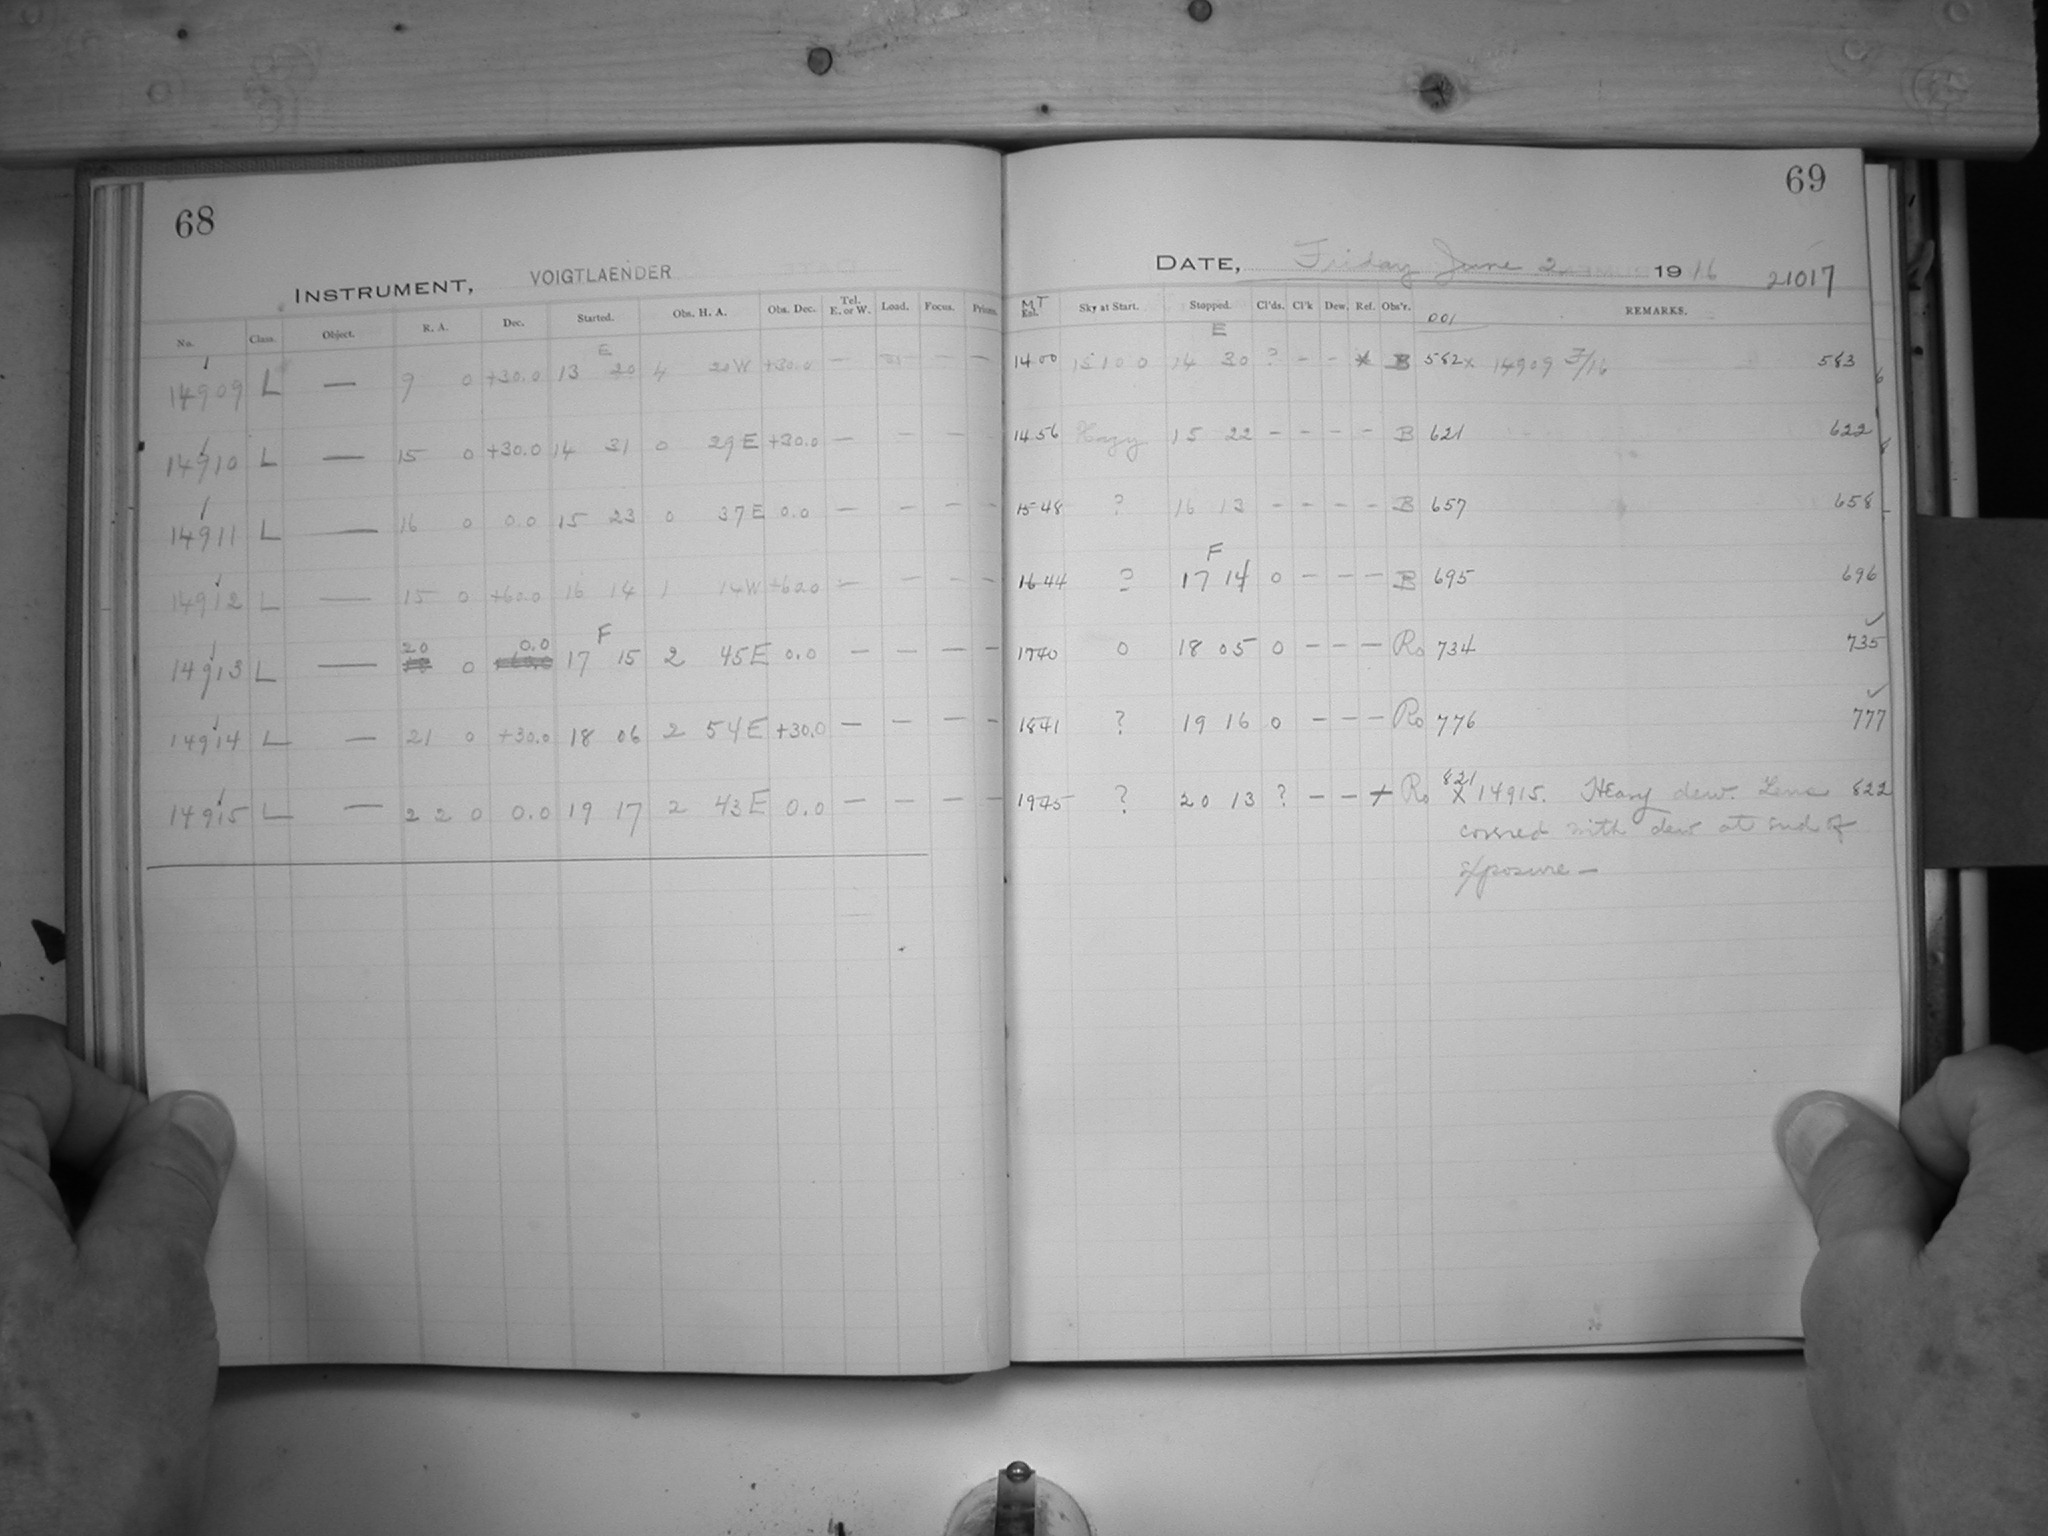 68
INSTRUMENT, VOIGTLAENDER
No. Class. Object. R. A. Dec. Started. Obs. H. A. Obs. Dec. Tel. E. or W. Load. Focus. Prisms.
14909 L — 9 0 +30.0 13 E 20 4 20 W +30.0 — — — —
14910 L — 15 0 +30.0 14 31 0 29 E +30.0 — — — —
14911 L — 16 0 0.0 15 23 0 37 E 0.0 — — — —
14912 L — 15 0 +60.0 16 14 1 14 W +60.0 — — — —
14913 L — 20 0 0.0 17 F 15 2 45 E 0.0 — — — —
14914 L — 21 0 +30.0 18 06 2 54 E +30.0 — — — —
14915 L — 22 0 0.0 19 17 2 43 E 0.0 — — — —
69
DATE, Friday June 2 1916 21017
M T Sky at Start. Stopped. Cl'ds. Cl'k Dew. Ref. Obs'r. 001 REMARKS.
1400 15100 14 E 30 ? - - B 582 x 14909 583
1456 Hazy 15 22 - - - - B 621 622
1548 ? 16 13 - - - - B 657 658
1644 ? 17 F 14 0 - - - B 695 696
1740 0 18 05 0 - - - Ro 734 735
1841 ? 19 16 0 - - - Ro 776 777
1945 ? 20 13 ? - - + Ro 821 X 14915. Heavy dew. Lens 822
covered with dew at end of
exposure —